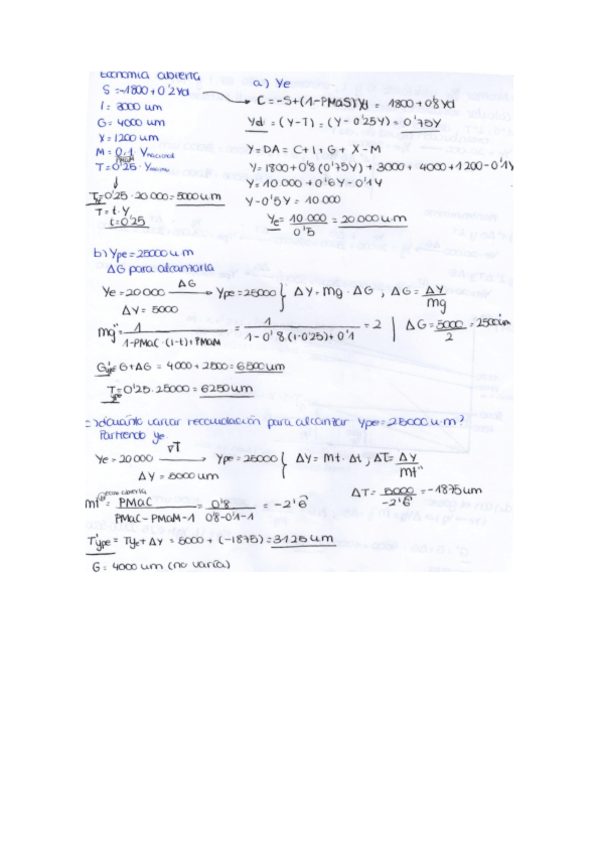 Economía abierta
S = -1800 + 0'2Yd
I = 3000 um
G = 4000 um
X = 1200 um
M = 0'1 · Ynacional
T = 0'25 · Y
PMaM
Tye = 0'25 · 20 000 = 5000 um
T = t · Y
t = 0'25
a) Ye
C = -S + (1-PMaS)Yd = 1800 + 0'8 Yd
Yd = (Y-T) = (Y - 0'25Y) = 0'75Y
Y = DA = C + I + G + X - M
Y = 1800 + 0'8 (0'75Y) + 3000 + 4000 + 1200 - 0'1Y
Y = 10 000 + 0'6Y - 0'1Y
Y - 0'5Y = 10 000
Ye = 10 000 / 0'5 = 20 000 u.m
b) Ype = 25000 u.m
ΔG para alcanzarla
Ye = 20 000 ΔG → Ype = 25000 { ΔY = mg · ΔG ; ΔG = ΔY / mg
ΔY = 5000
mg'' = 1 / 1-PMaC · (1-t) + PMaM = 1 / 1 - 0'8 (1-0'25) + 0'1 = 2 | ΔG = 5000 / 2 = 2500 um
G'ype = G + ΔG = 4000 + 2500 = 6500 um
Type = 0'25 · 25000 = 6250 um
c) ¿cuánto variar recaudación para alcanzar Ype = 25000 u.m?
Partiendo ye
Ye = 20 000 ∇T → Ype = 25000 { ΔY = mt · Δt ; ΔT = ΔY / mt''
ΔY = 5000 um
mt'' = PMaC / PMaC - PMaM - 1 = 0'8 / 0'8-0'1-1 = -2'6
ΔT = 5000 / -2'6 = -1875 um
T'ype = Tye + ΔY = 5000 + (-1875) = 3125 um
G = 4000 um (no varía)